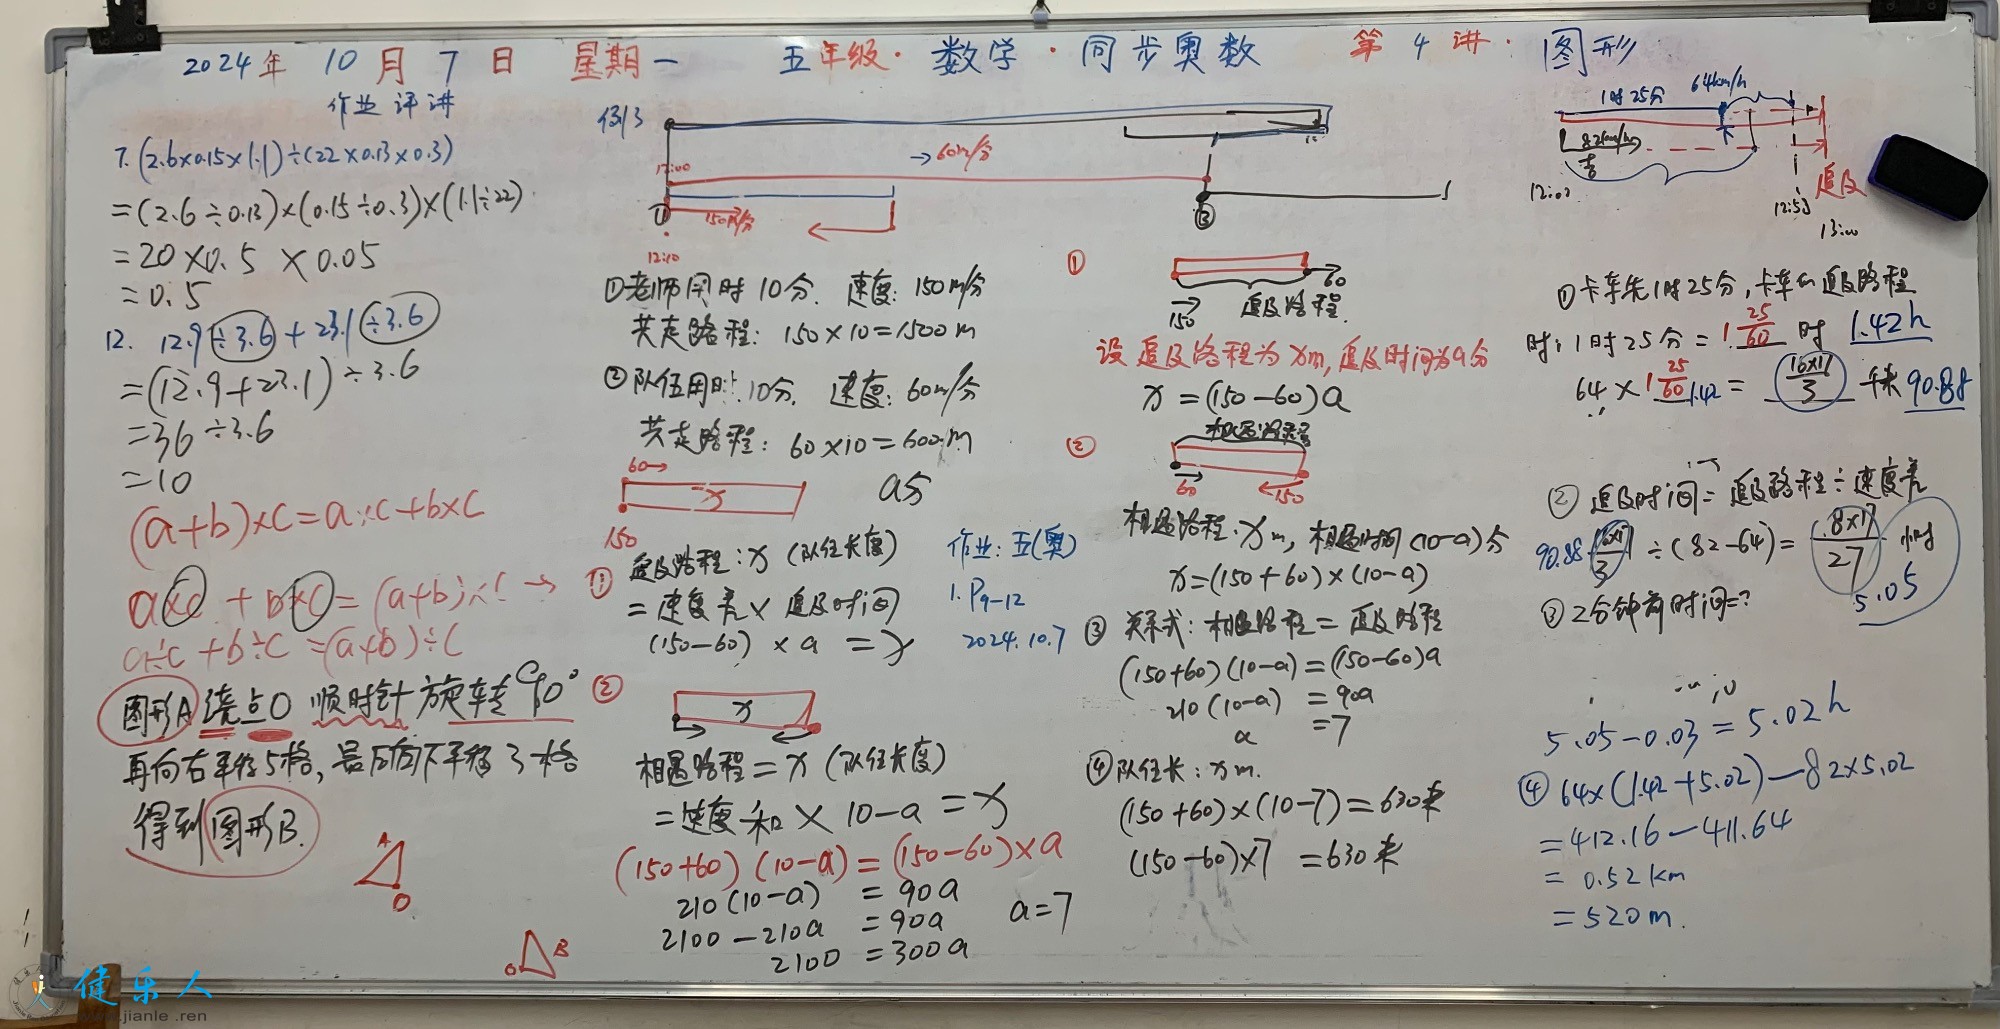 2024年 10月7日 星期一 五年级·数学·同步奥数 第4讲: 图形
作业评讲
7. (2.6×0.15×1.1)÷(22×0.13×0.3)
=(2.6÷0.13)×(0.15÷0.3)×(1.1÷22)
=20×0.5×0.05
=0.5
12. 12.9÷3.6+23.1÷3.6
=(12.9+23.1)÷3.6
=36÷3.6
=10
(a+b)×c=a×c+b×c
a×c+b×c=(a+b)×c→
a÷c+b÷c=(a+b)÷c
图形A绕点O顺时针旋转90°
再向右平移5格,最后向下平移3格
得到图形B.
A
O
O
B
例3
12:00
→60m/分
150m/分
①
③
12:10
①老师用时10分. 速度: 150m/分
共走路程: 150×10=1500m
②队伍用时:10分. 速度: 60m/分
共走路程: 60×10=600m
60→
x
a分
150
① 追及路程:x (队伍长度)
=速度差×追及时间
(150-60)×a=x
②
x
相遇路程=x (队伍长度)
=速度和×10-a=x
(150+60)(10-a)=(150-60)×a
210(10-a)=90a
2100-210a=90a
2100=300a
a=7
作业: 五(奥)
1. P9-12
2024.10.7
①
60
150
追及路程.
设追及路程为xm,追及时间为a分
x=(150-60)a
②
相遇路程
60
150
相遇路程:xm, 相遇时间(10-a)分
x=(150+60)×(10-a)
③ 关系式: 相遇路程=追及路程
(150+60)(10-a)=(150-60)a
210(10-a)=90a
a=7
④队伍长: xm.
(150+60)×(10-7)=630米
(150-60)×7=630米
1时25分
64km/h
82km/h
追及
13:00
①卡车先1时25分,卡车的追及路程
时: 1时25分=1 25/60 时 1.42h
64×1 25/60 1.42= 16×17/3 千米 90.88
② 追及时间=追及路程÷速度差
90.88 16×17/3 ÷(82-64)= 8×17/27 小时
5.05
③ 2分钟前时间=?
5.05-0.03=5.02h
④ 64×(1.42+5.02)-82×5.02
=412.16-411.64
=0.52km
=520m.
健乐人
jianle.ren